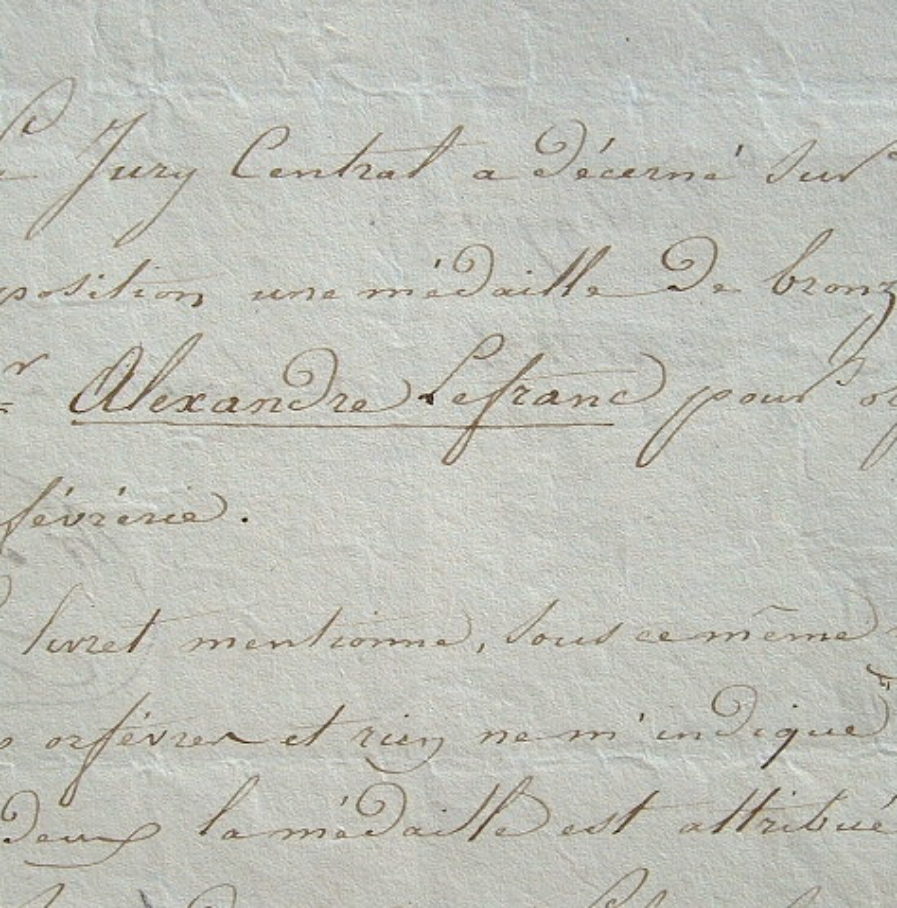 Jury Central a décerné sur
position une médaille de bronz
r Alexandre Lefranc pour
févrerie.
livret mentionne, sous ce même
orfévres et rien ne m'indique
deux la médaille est attribué